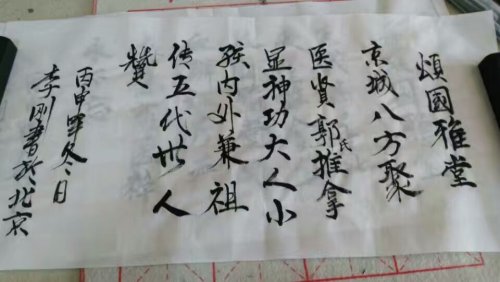 頌國雅堂
京城八方聚
医贤郭氏推拿
显神功大人小
孩内外兼祖
传五代世人
赞
丙申年冬日
李刚書於北京